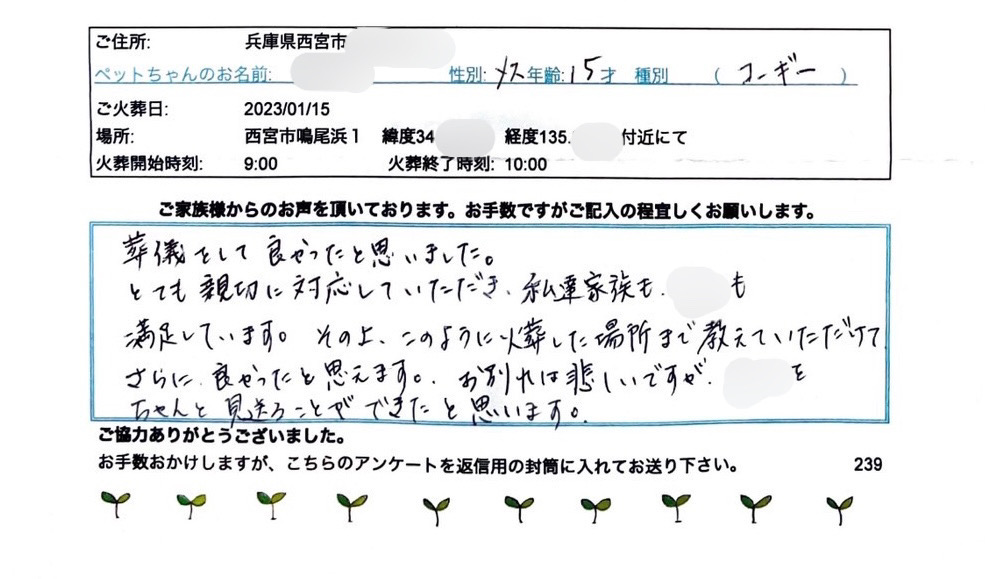 ご住所: 兵庫県西宮市
ペットちゃんのお名前: 性別: メス 年齢: 15才 種別 ( コーギー )
ご火葬日: 2023/01/15
場所: 西宮市鳴尾浜1 緯度34 経度135. 付近にて
火葬開始時刻: 9:00 火葬終了時刻: 10:00
ご家族様からのお声を頂いております。お手数ですがご記入の程宜しくお願いします。
葬儀をして良かったと思いました。
とても親切に対応していただき、私達家族も、 も
満足しています。その上、このように火葬した場所まで教えていただけて
さらに、良かったと思えます。お別れは悲しいですが、 を
ちゃんと見送ることができたと思います。
ご協力ありがとうございました。
お手数おかけしますが、こちらのアンケートを返信用の封筒に入れてお送り下さい。 239